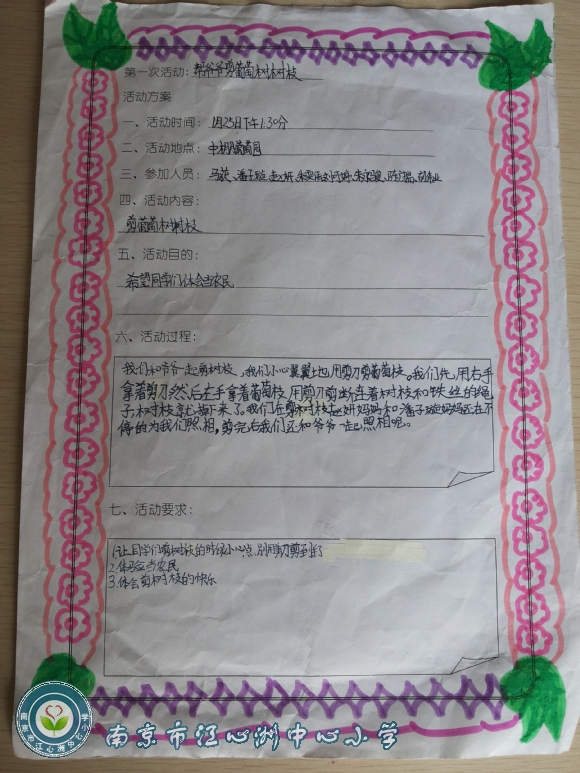 第一次活动：帮爷爷剪葡萄树树枝
活动方案
一、活动时间：1月25日下午1:30分
二、活动地点：葡萄园
三、参加人员：
四、活动内容：
剪葡萄树树枝
五、活动目的：
希望同学们体会当农民
六、活动过程：
我们和爷爷一起剪树枝，我们小心翼翼地用剪刀剪葡萄枝。我们先用右手
拿着剪刀然后左手拿着葡萄枝，用剪刀剪断连着树枝和铁丝的绳
子树枝就掉下来了。我们在剪树枝赵妍妈妈和潘子璇妈妈还在不
停的为我们照相，剪完后我们还和爷爷一起照相呢。
七、活动要求：
1.让同学们剪树枝的时候小心点，别用剪刀剪到手
2.体验当农民
3.体会剪树枝的快乐
南京市江心洲中心小学
南京市江心洲中心小学